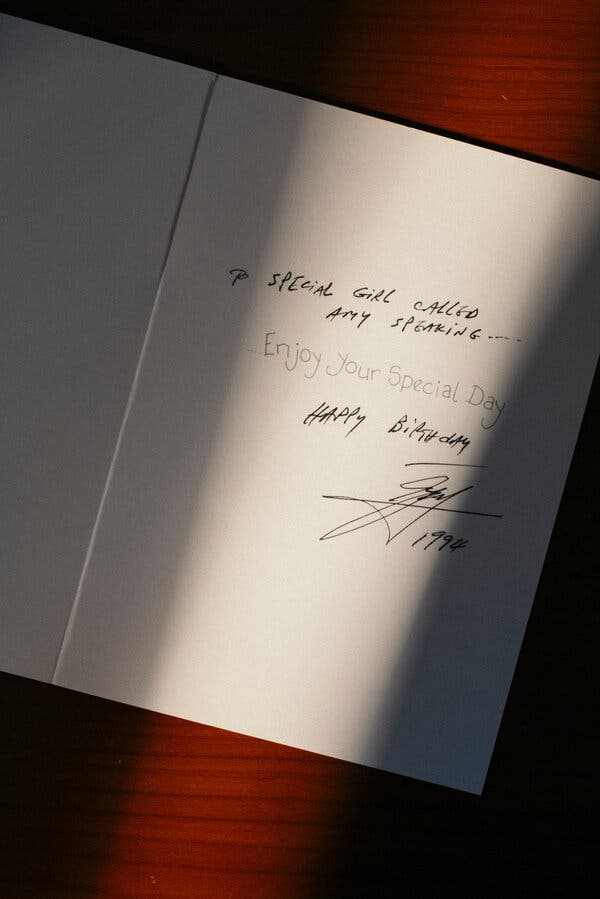 To SPECIAL GIRL CALLED
AMY SPEAKING ----
Enjoy Your Special Day
HAPPY BIRTHDAY
1994